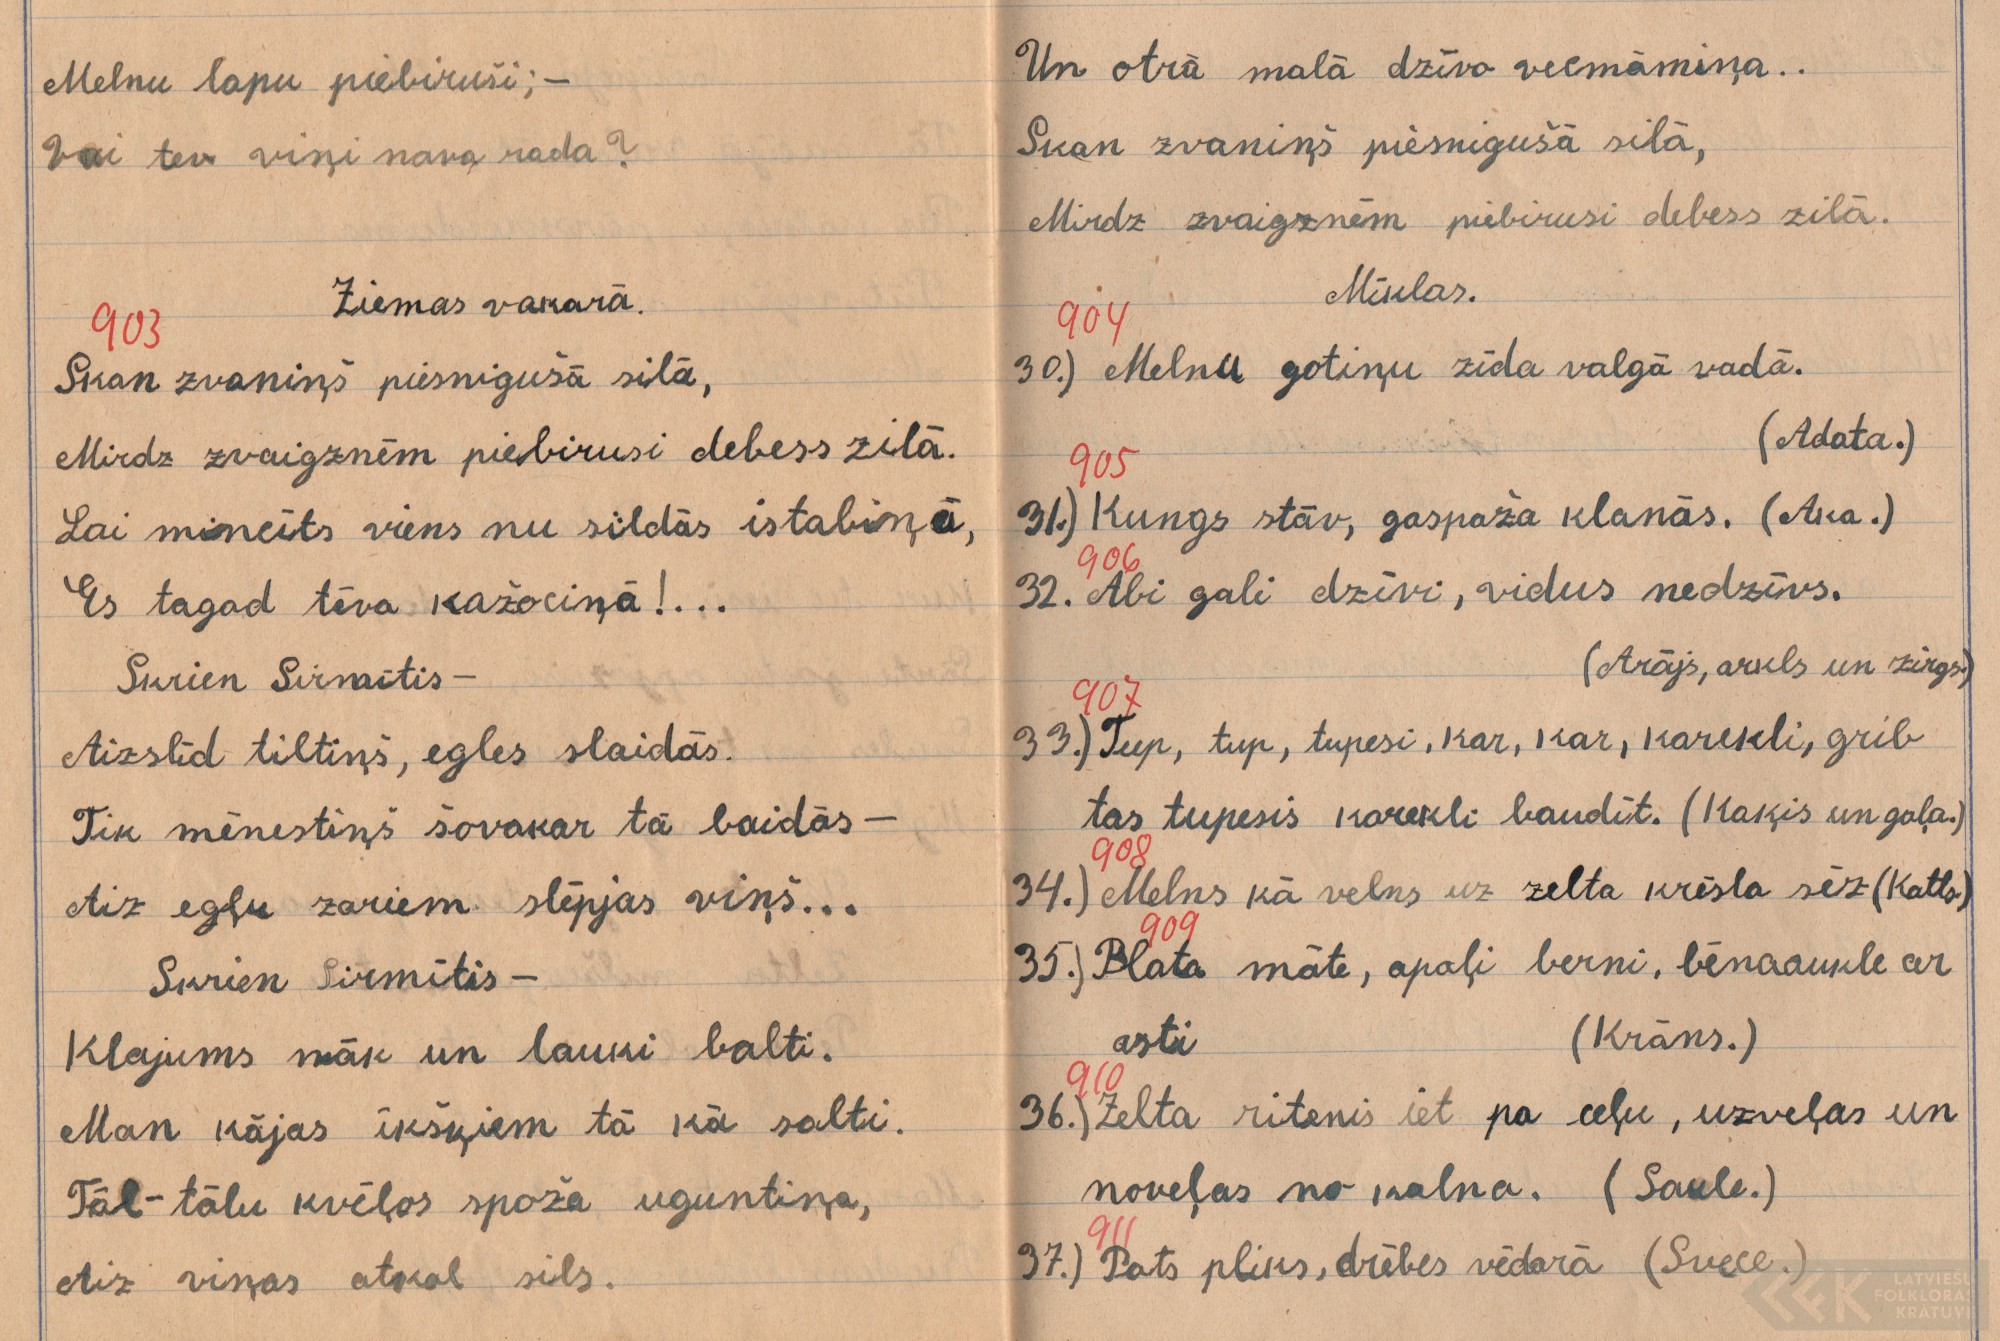 Melnu lapu piebiruši;—
Vai tev viņi nava rada?
Ziemas vakarā.
903
Skan zvaniņš piesnigušā silā,
Mirdz zvaigznēm piebirusi debess zilā.
Lai mincīts viens nu sildās istabiņā,
Es tagad tēva kažociņā!...
Skrien Sirmītis—
Aizslīd tiltiņš, egles slaidās.
Tik mēnestiņš šovakar tā baidās—
Aiz egļu zariem slēpjas viņš...
Skrien Sirmītis—
Klajums māk un lauki balti.
Man kājas īkšķiem tā kā salti.
Tāl-tālu kvēlos spoža uguntiņa,
Aiz viņas atkal sils.
Un otrā malā dzīvo vecmāmiņa..
Skan zvaniņš piesnigušā silā,
Mirdz zvaigznēm piebirusi debess zilā.
Mīklas.
904
30.) Melnu gotiņu zīda valgā vadā.
(Adata.)
905
31.) Kungs stāv, gaspaža klanās. (Aka.)
906
32. Abi gali dzīvi, vidus nedzīvs.
(Arājs, arkls un zirgs.)
907
33.) Tup, tup, tupesi, kar, kar, karekli, grib
tas tupesis karekli baudīt. (Kaķis un gaļa.)
908
34.) Melns kā velns uz zelta krēsla sēž (Katls)
909
35.) Plata māte, apaļi berni, bēnaaukle ar
asti (Krāns.)
910
36.) Zelta ritenis iet pa ceļu, uzveļas un
noveļas no kalna. (Saule.)
911
37.) Pats pliks, drēbes vēdarā (Svece.)
LATVIEŠU
FOLKLORAS
KRĀTUVE